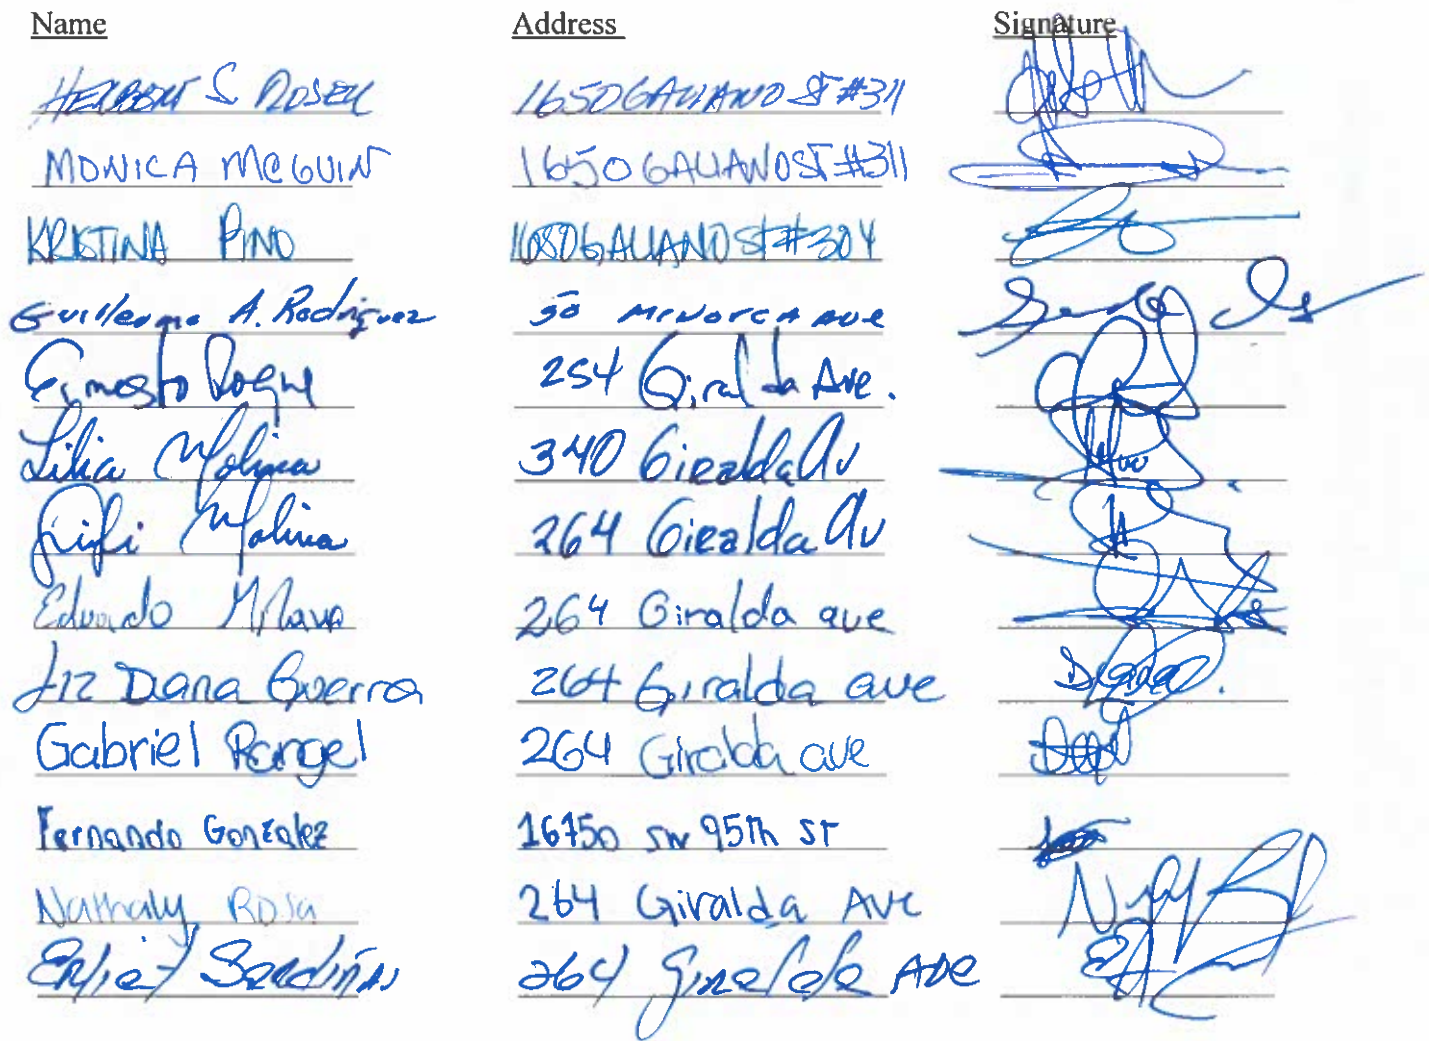 Name Address Signature
HERBERT S ROSEN 1650 GALIANO ST #311
MONICA MCGUIN 1650 GALIANO ST #311
KRISTINA PINO 1080 GALIANO ST #304
Guillermo A. Rodriguez 50 MENORCA AVE
Ernesto Roque 254 Giralda Ave.
Lilia Molina 340 Giralda Av
Fifi Molina 264 Giralda Av
Eduardo 264 Giralda ave
Liz Diana Guerra 264 Giralda ave
Gabriel Rangel 264 Giralda ave
Fernando Gonzalez 16750 SW 95Th ST
Nathaly Rosa 264 Giralda Ave
Sardiñas 264 Giralda Ave